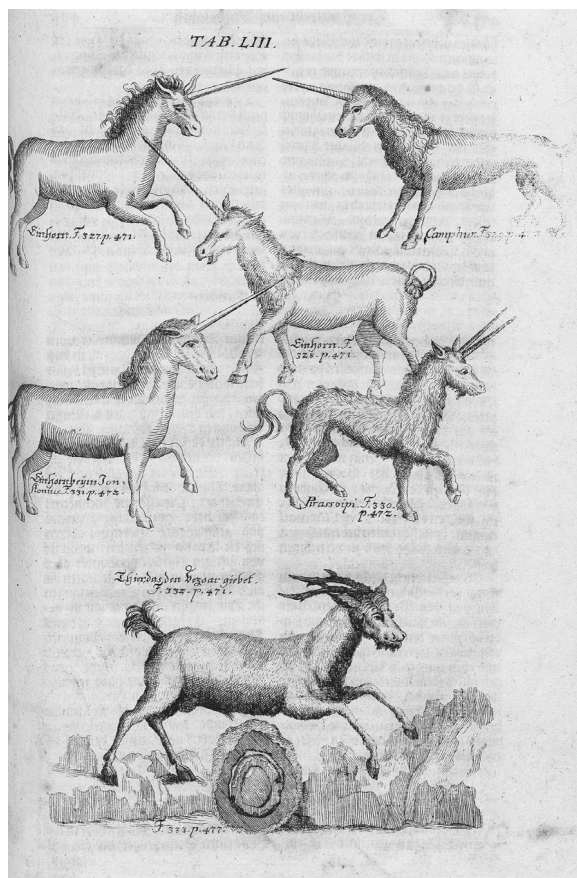 TAB. LIII.
Einhorn. F. 327. p. 471.
Camphur. F. 329. p. 4
Einhorn. F.
328. p. 471.
Einhorn beÿm Jon-
stonius. F. 331. p. 472.
Pirassoipi. F. 330.
p. 472.
Thier das den Bezoar giebet.
F. 332. p. 471.
F. 333. p. 477.